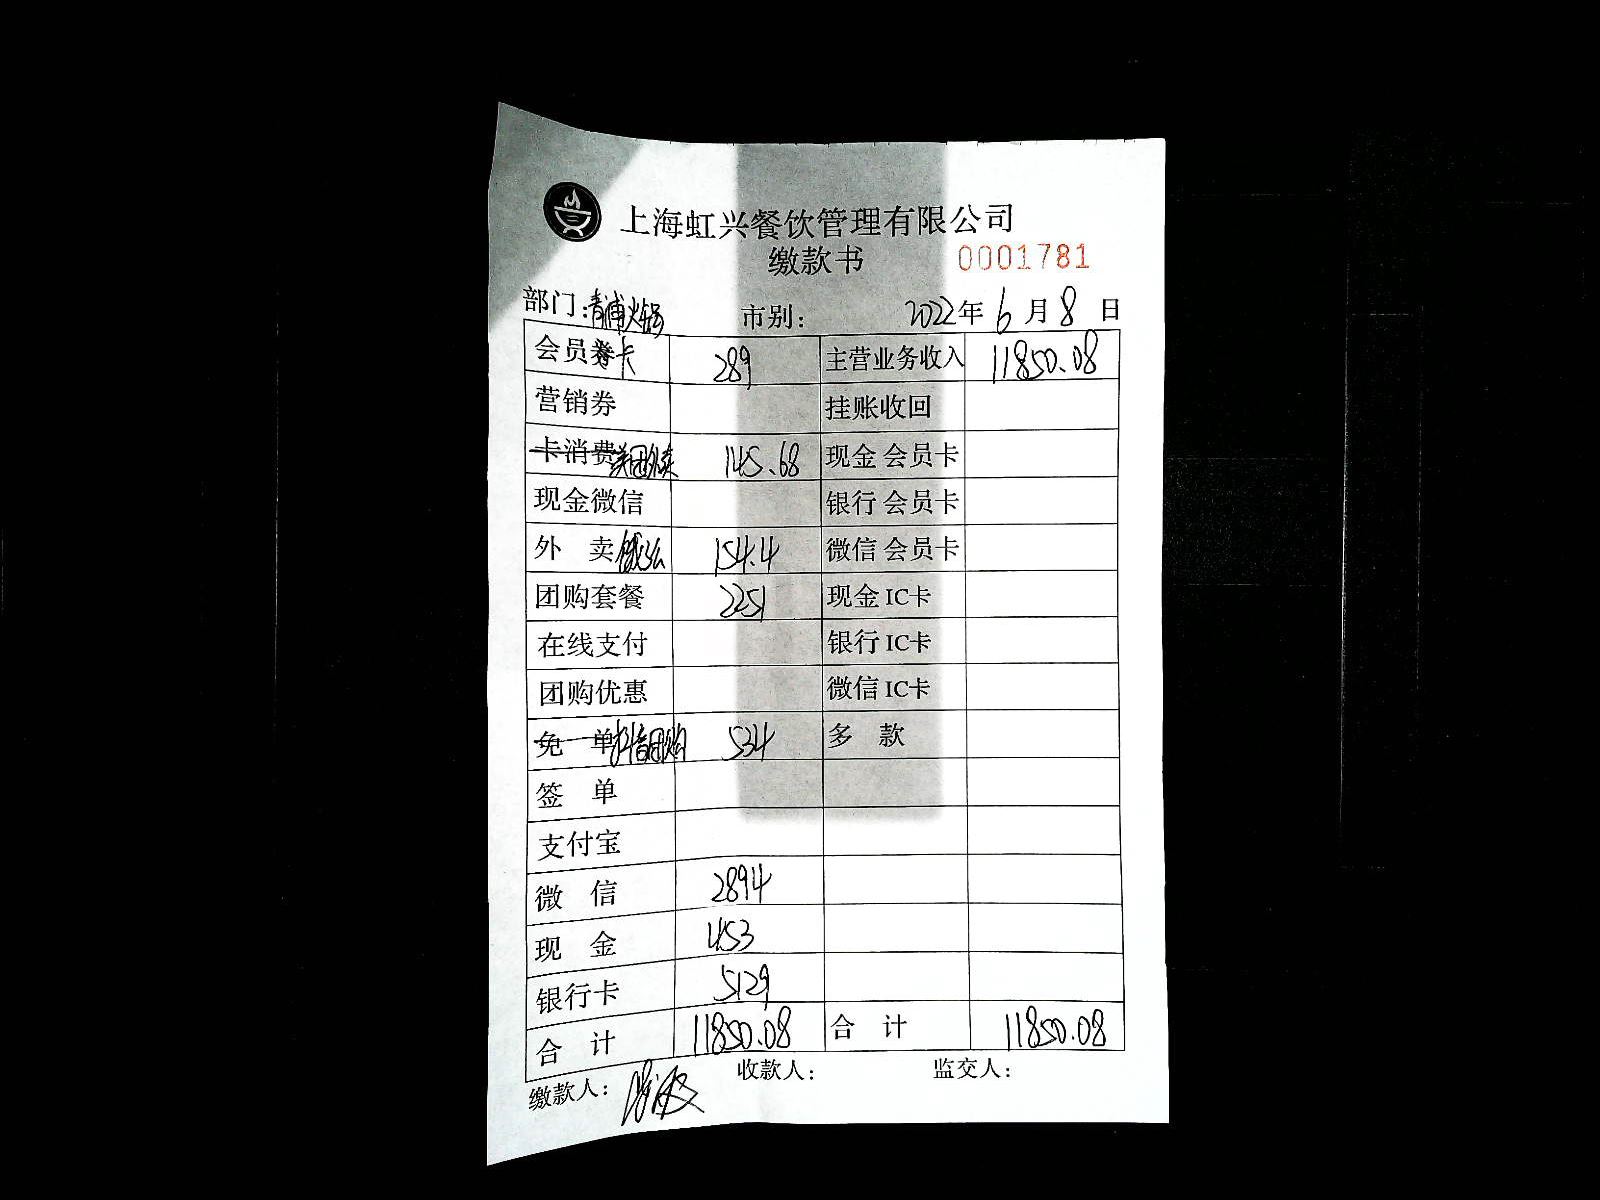 上海虹兴餐饮管理有限公司
缴款书 0001781
部门:青浦火锅 市别: 2022年6月8日
会员券卡 289 主营业务收入 11850.08
营销券 挂账收回
卡消费美团外卖 145.68 现金会员卡
现金微信 银行会员卡
外卖饿了么 154.4 微信会员卡
团购套餐 2251 现金IC卡
在线支付 银行IC卡
团购优惠 微信IC卡
免单抖音团购 534 多款
签单
支付宝
微信 2894
现金 453
银行卡 5129
合计 11850.08 合计 11850.08
缴款人: 收款人: 监交人: